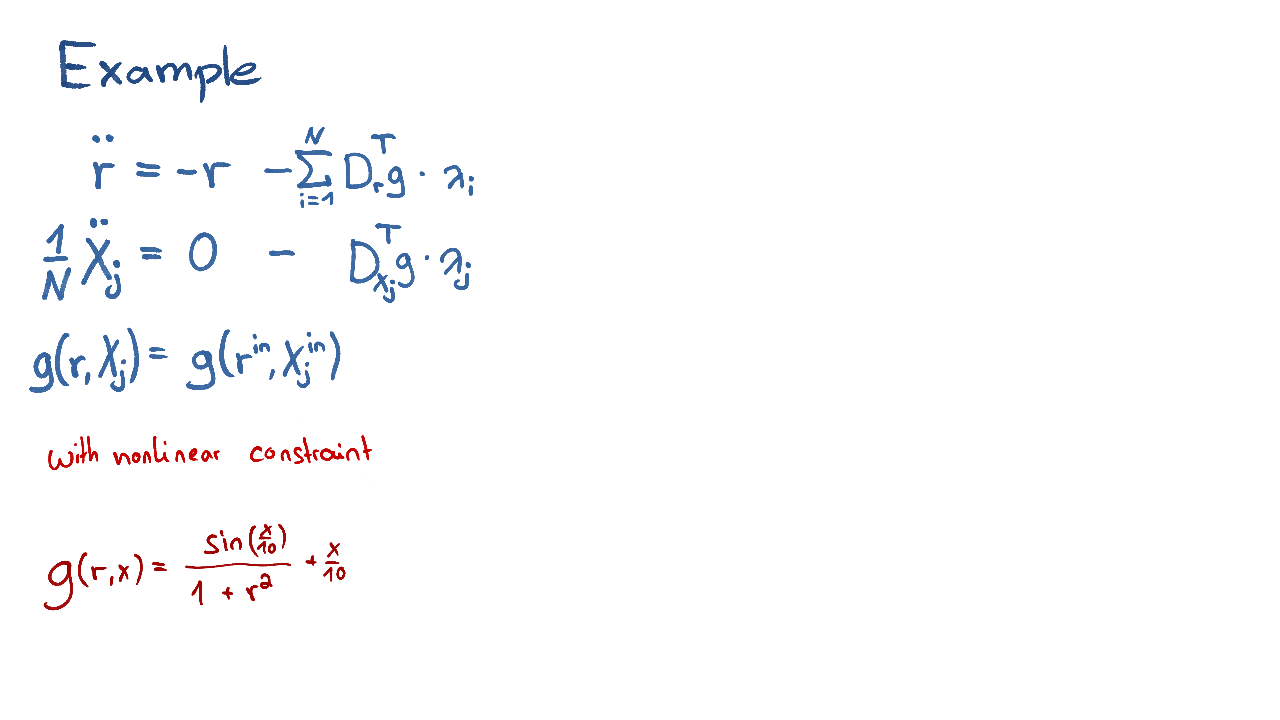 Example
r̈ = -r - ∑_{i=1}^{N} D_r^T g · λ_i
1/N Ẍ_j = 0 - D_{x_j}^T g · λ_j
g(r, X_j) = g(r^{in}, X_j^{in})
with nonlinear constraint
g(r,x) = sin(x/10) / (1 + r²) + x/10